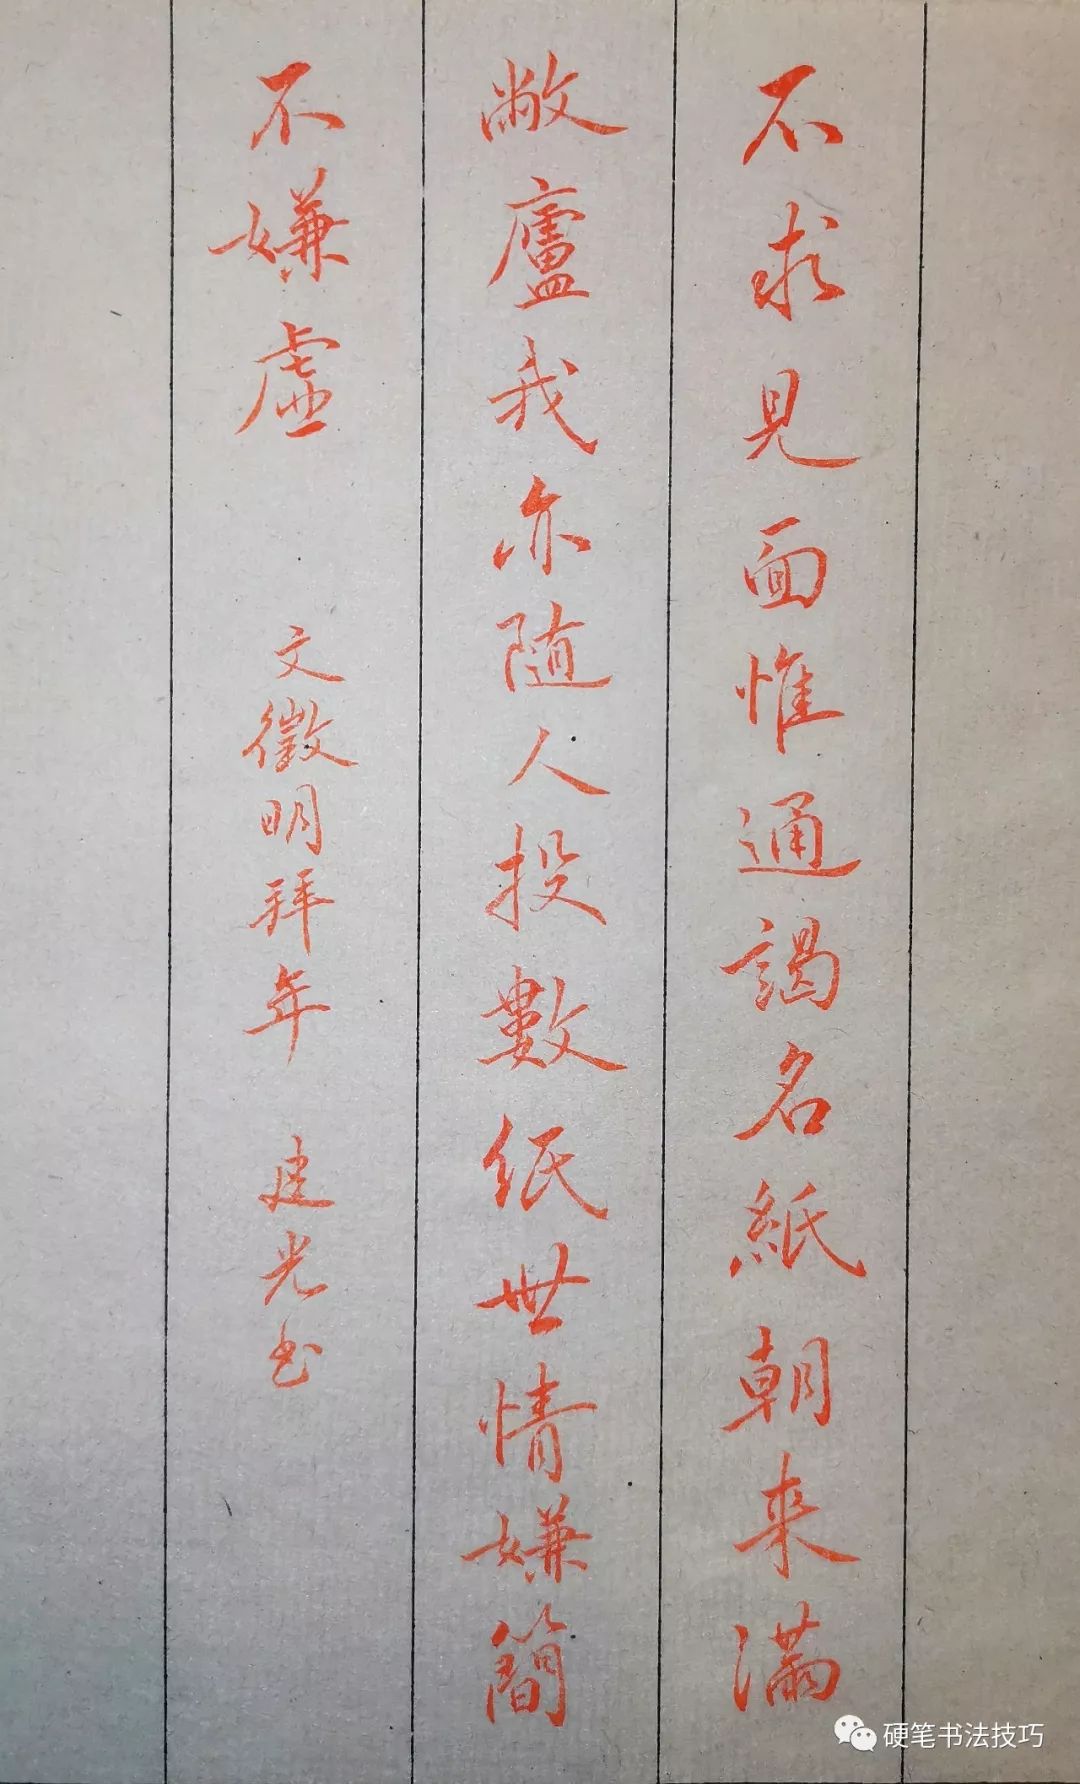 不求見面惟通謁名紙朝来满
敝廬我亦随人投數纸世情嫌簡
不嫌虚 文徵明拜年 建光书
硬笔书法技巧